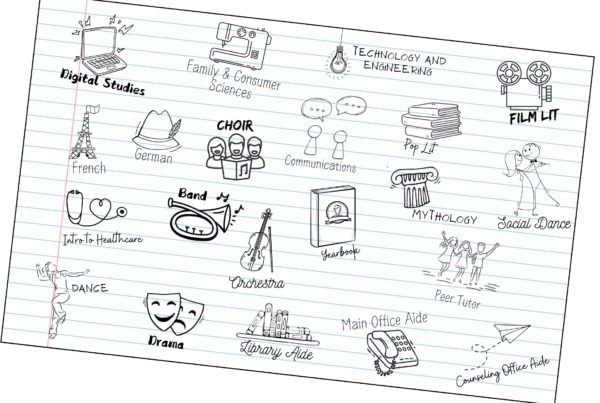 Digital Studies
Family & Consumer
Sciences
TECHNOLOGY AND
ENGINEERING
FILM LIT
French
German
CHOIR
Communications
Pop Lit
Social Dance
Intro To Healthcare
Band
Orchestra
Yearbook
MYTHOLOGY
Peer Tutor
DANCE
Drama
Library Aide
Main Office Aide
Counseling Office Aide